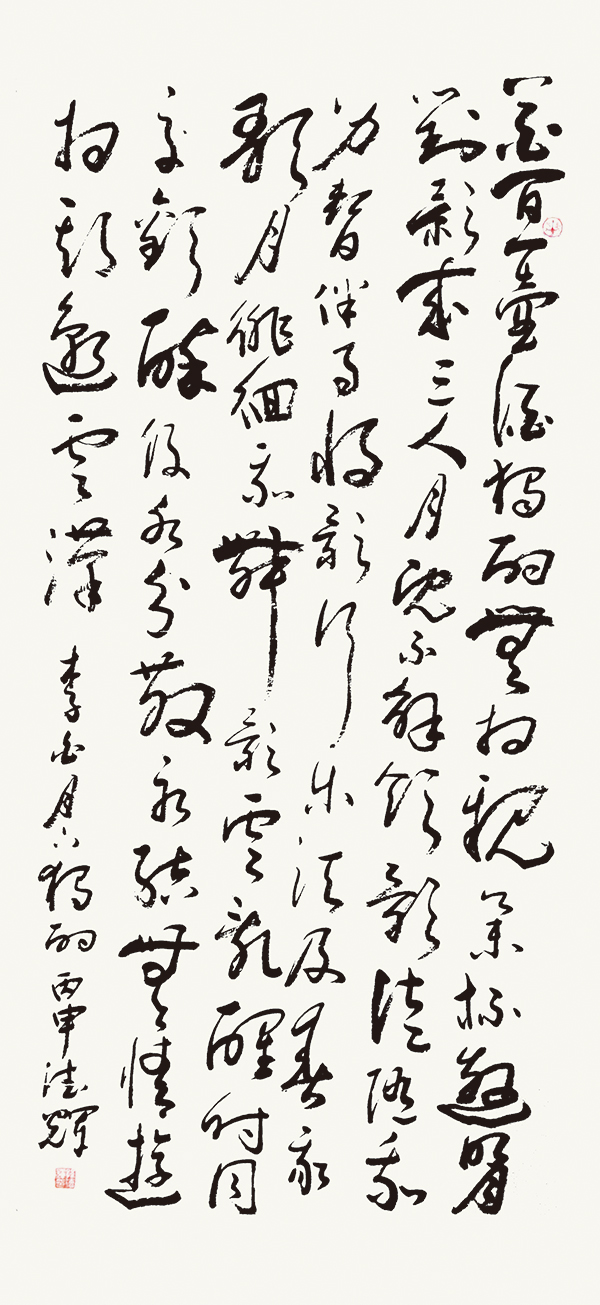 花間一壺酒獨酌無相親舉杯邀明
對影成三人月既不解飲影徒隨我
身暫伴月將影行樂須及春我
歌月徘徊我舞影零亂醒時同
交歡醉後各分散永結無情遊
相期邈雲漢 李白月下獨酌 丙申法輝